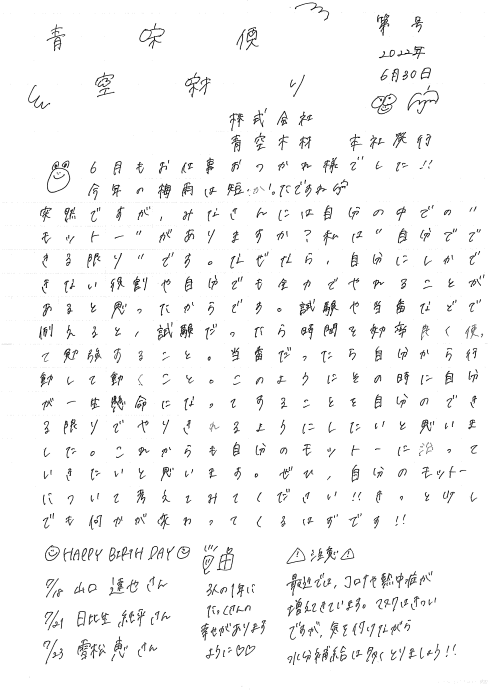 青空便
空木材り
第 号
2022年
6月30日
株式会社
青空木材 本社発行
6月もお仕事おつかれ様でした!!
今年の梅雨は短かったですね
突然ですが、みなさんには自分の中での"
モットー"がありますか?私は"自分でで
きる限り"です。なぜなら、自分にしかで
きない役割や自分でも全力でやれることが
あると思ったからです。試験や当番などで
例えると、試験だったら時間を効率良く使っ
て勉強すること。当番だったら自分から行
動して動くこと。このようにその時に自分
が一生懸命になってすることを自分のでき
る限りでやりきれるようにしたいと思いま
した。これからも自分のモットーに沿って
いきたいと思います。ぜひ、自分のモットー
について考えてみてください!!きっと少し
でも何かが変わってくるはずです!!
HAPPY BIRTH DAY
7/18 山口 達也さん
7/21 日比生 純平さん
7/23 雪松 恵さん
3人の1年に
たっくさんの
幸せがあります
ように♡♡
⚠注意⚠
最近では、コロナや熱中症が
増えてきています。マスクはきつい
ですが、気を付けながら
水分補給は多くとりましょう!!